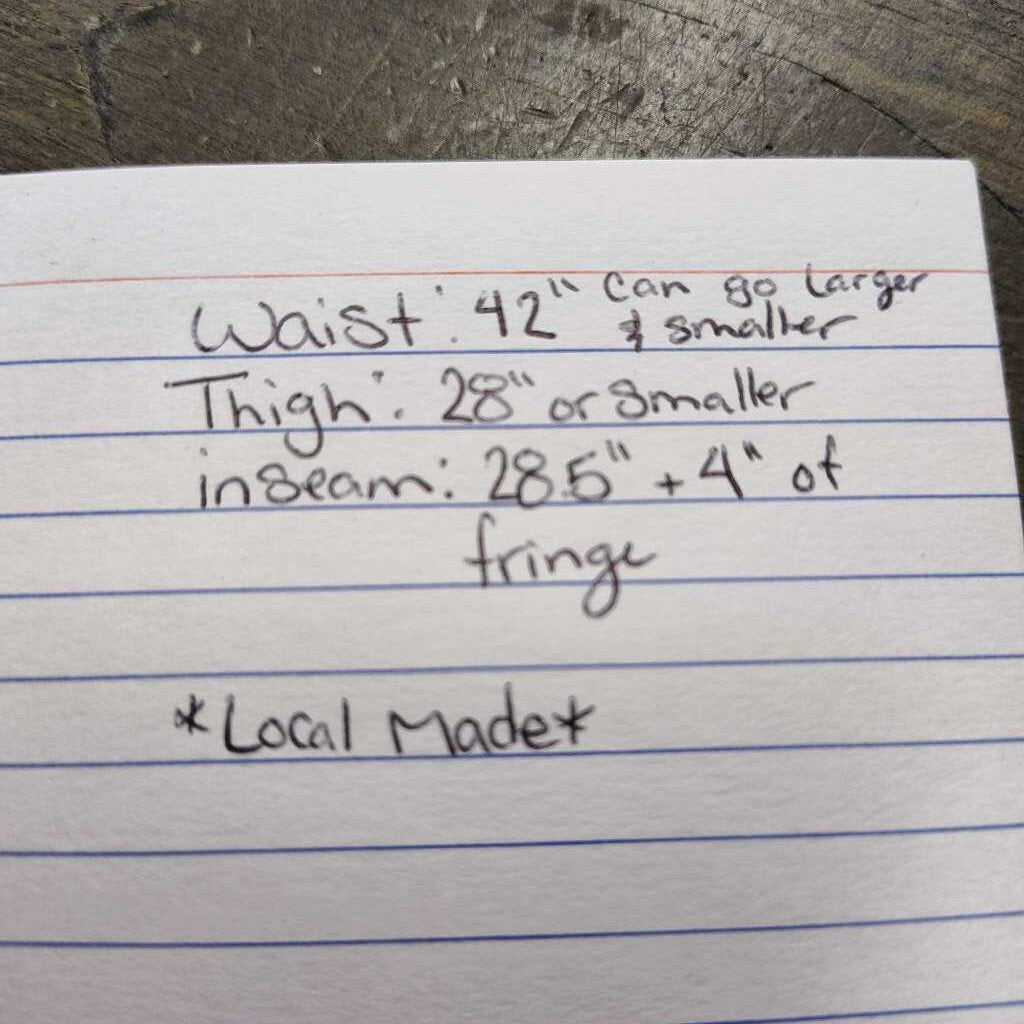 Waist: 42" Can go Larger
& smaller
Thigh: 28" or smaller
inseam: 28.5" + 4" of
fringe
*Local Made*